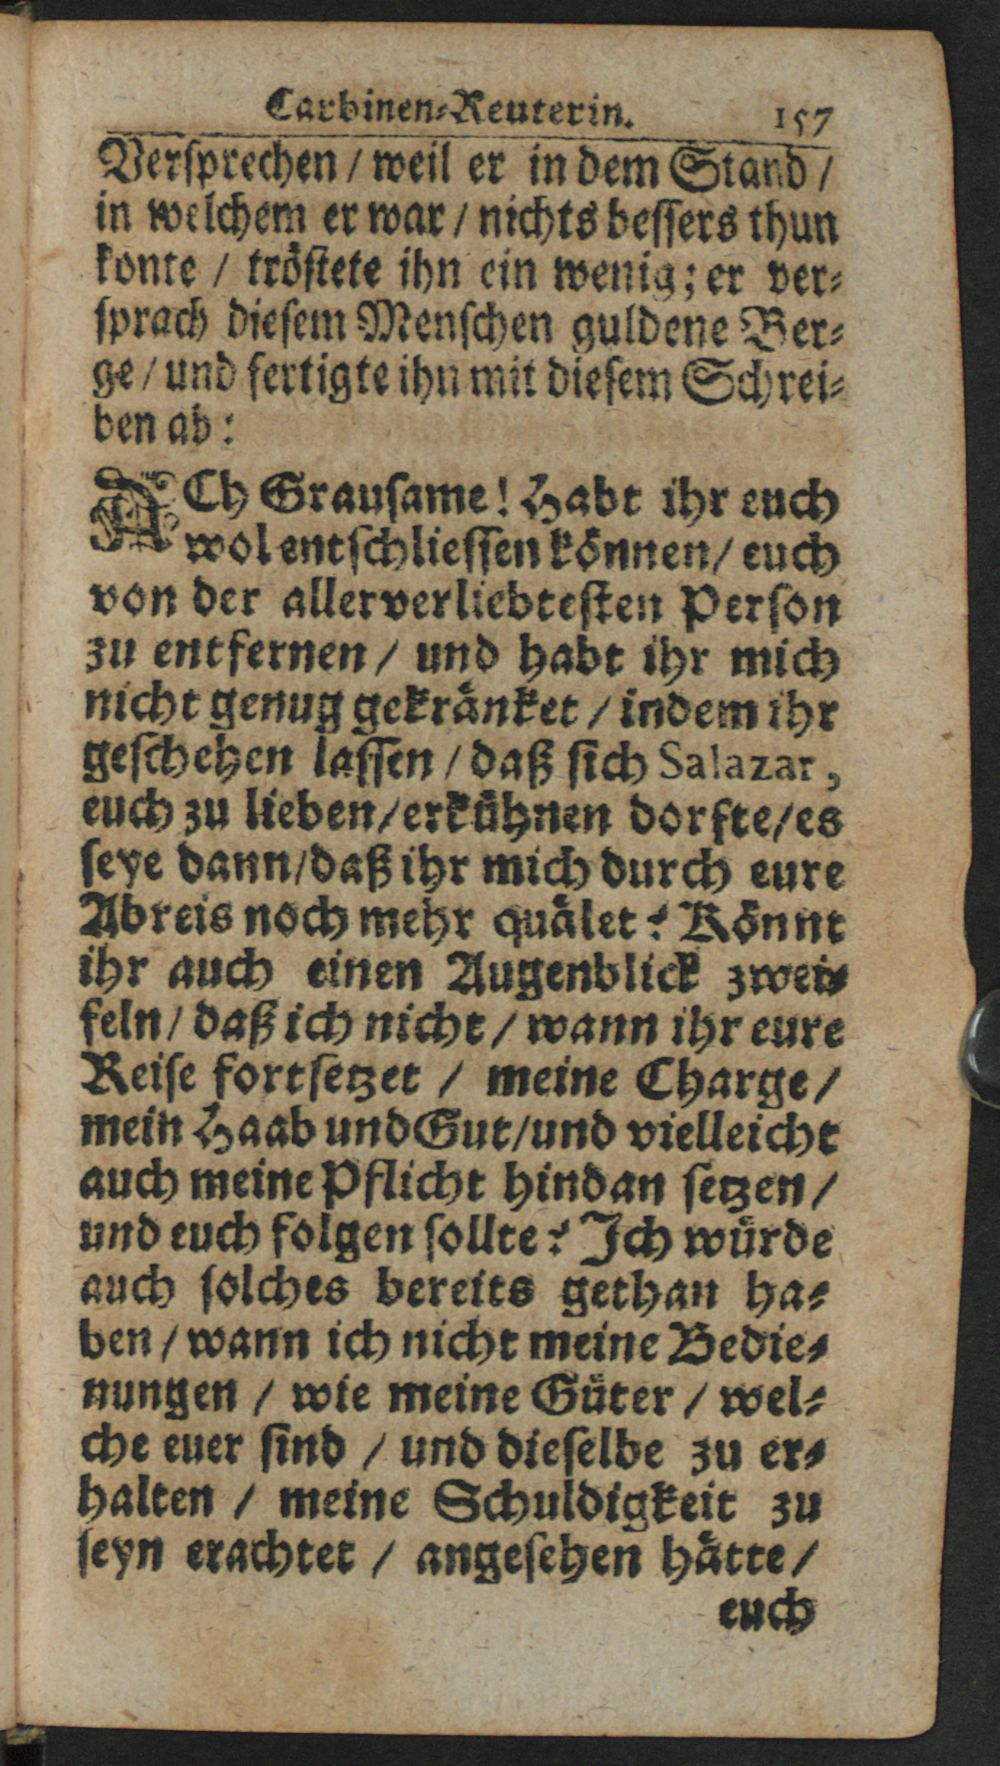 Carbinen-Reuterin. 157
Versprechen / weil er in dem Stand /
in welchem er war / nichts bessers thun
konte / tröstete ihn ein wenig; er ver-
sprach diesem Menschen guldene Ber-
ge / und fertigte ihn mit diesem Schrei-
ben ab:
ACh Grausame! Habt ihr euch
wol entschliessen können / euch
von der allerverliebtesten Person
zu entfernen / und habt ihr mich
nicht genug gekränket / indem ihr
geschehen lassen / daß sich Salazar,
euch zu lieben / erkühnen dorfte / es
seye dann / daß ihr mich durch eure
Abreis noch mehr quälet? Könnt
ihr auch einen Augenblick zwei-
feln / daß ich nicht / wann ihr eure
Reise fortsetzet / meine Charge /
mein Haab und Gut / und vielleicht
auch meine Pflicht hindan setzen /
und euch folgen sollte? Ich würde
auch solches bereits gethan ha-
ben / wann ich nicht meine Bedie-
nungen / wie meine Güter / wel-
che euer sind / und dieselbe zu er-
halten / meine Schuldigkeit zu
seyn erachtet / angesehen hätte /
euch